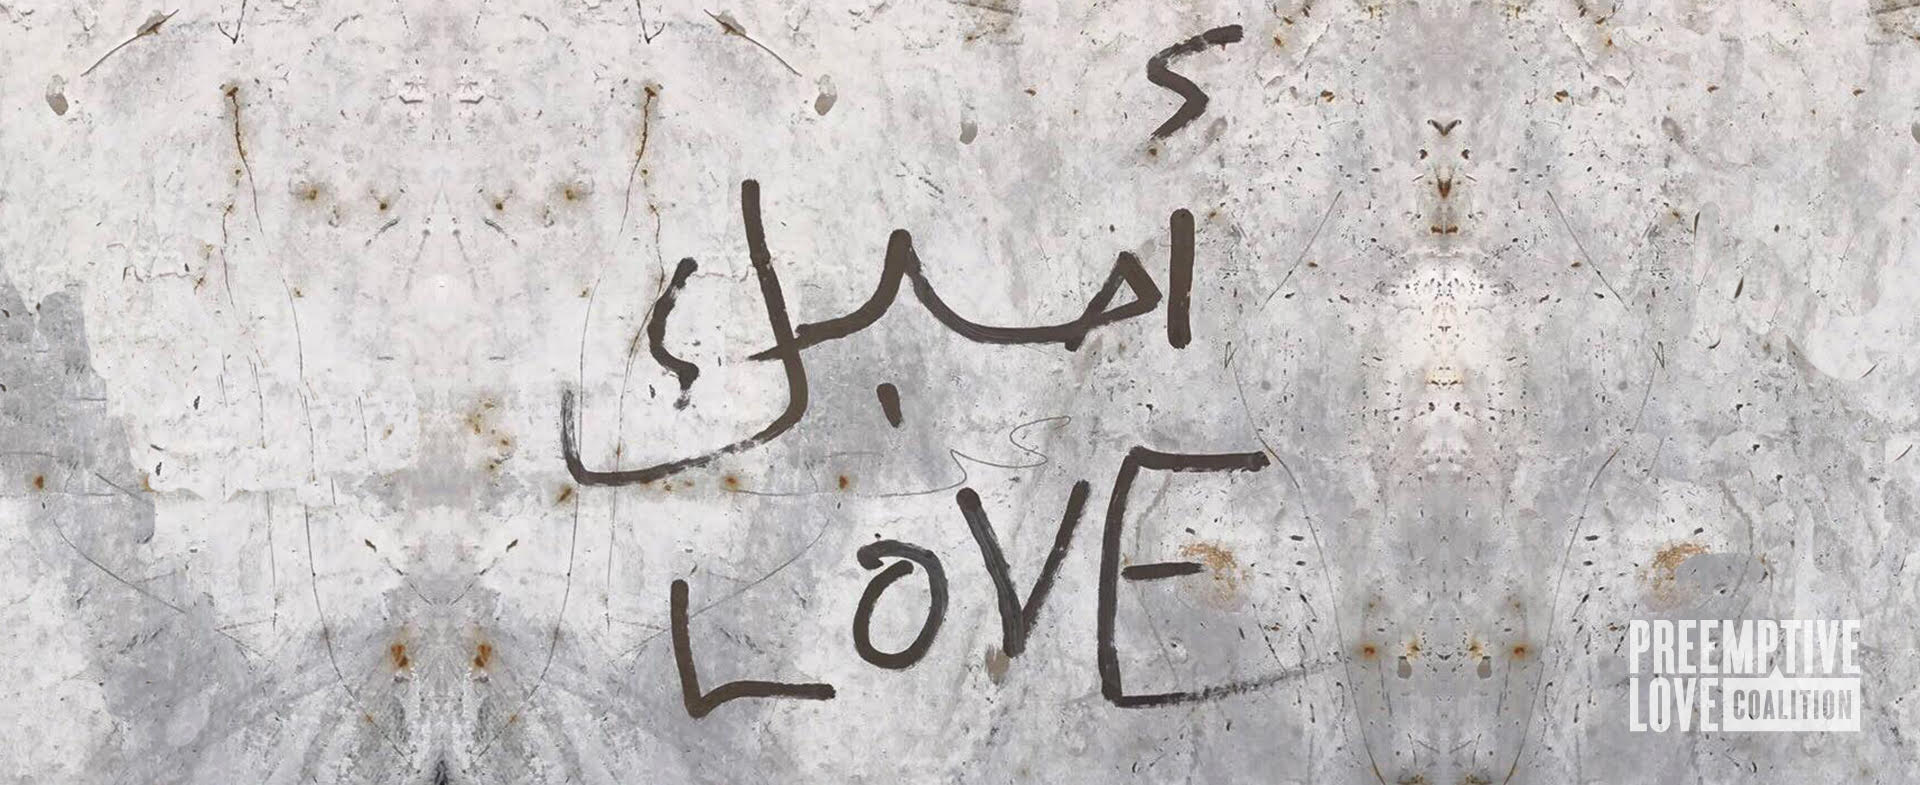 أحبك
LOVE
PREEMPTIVE
LOVE COALITION